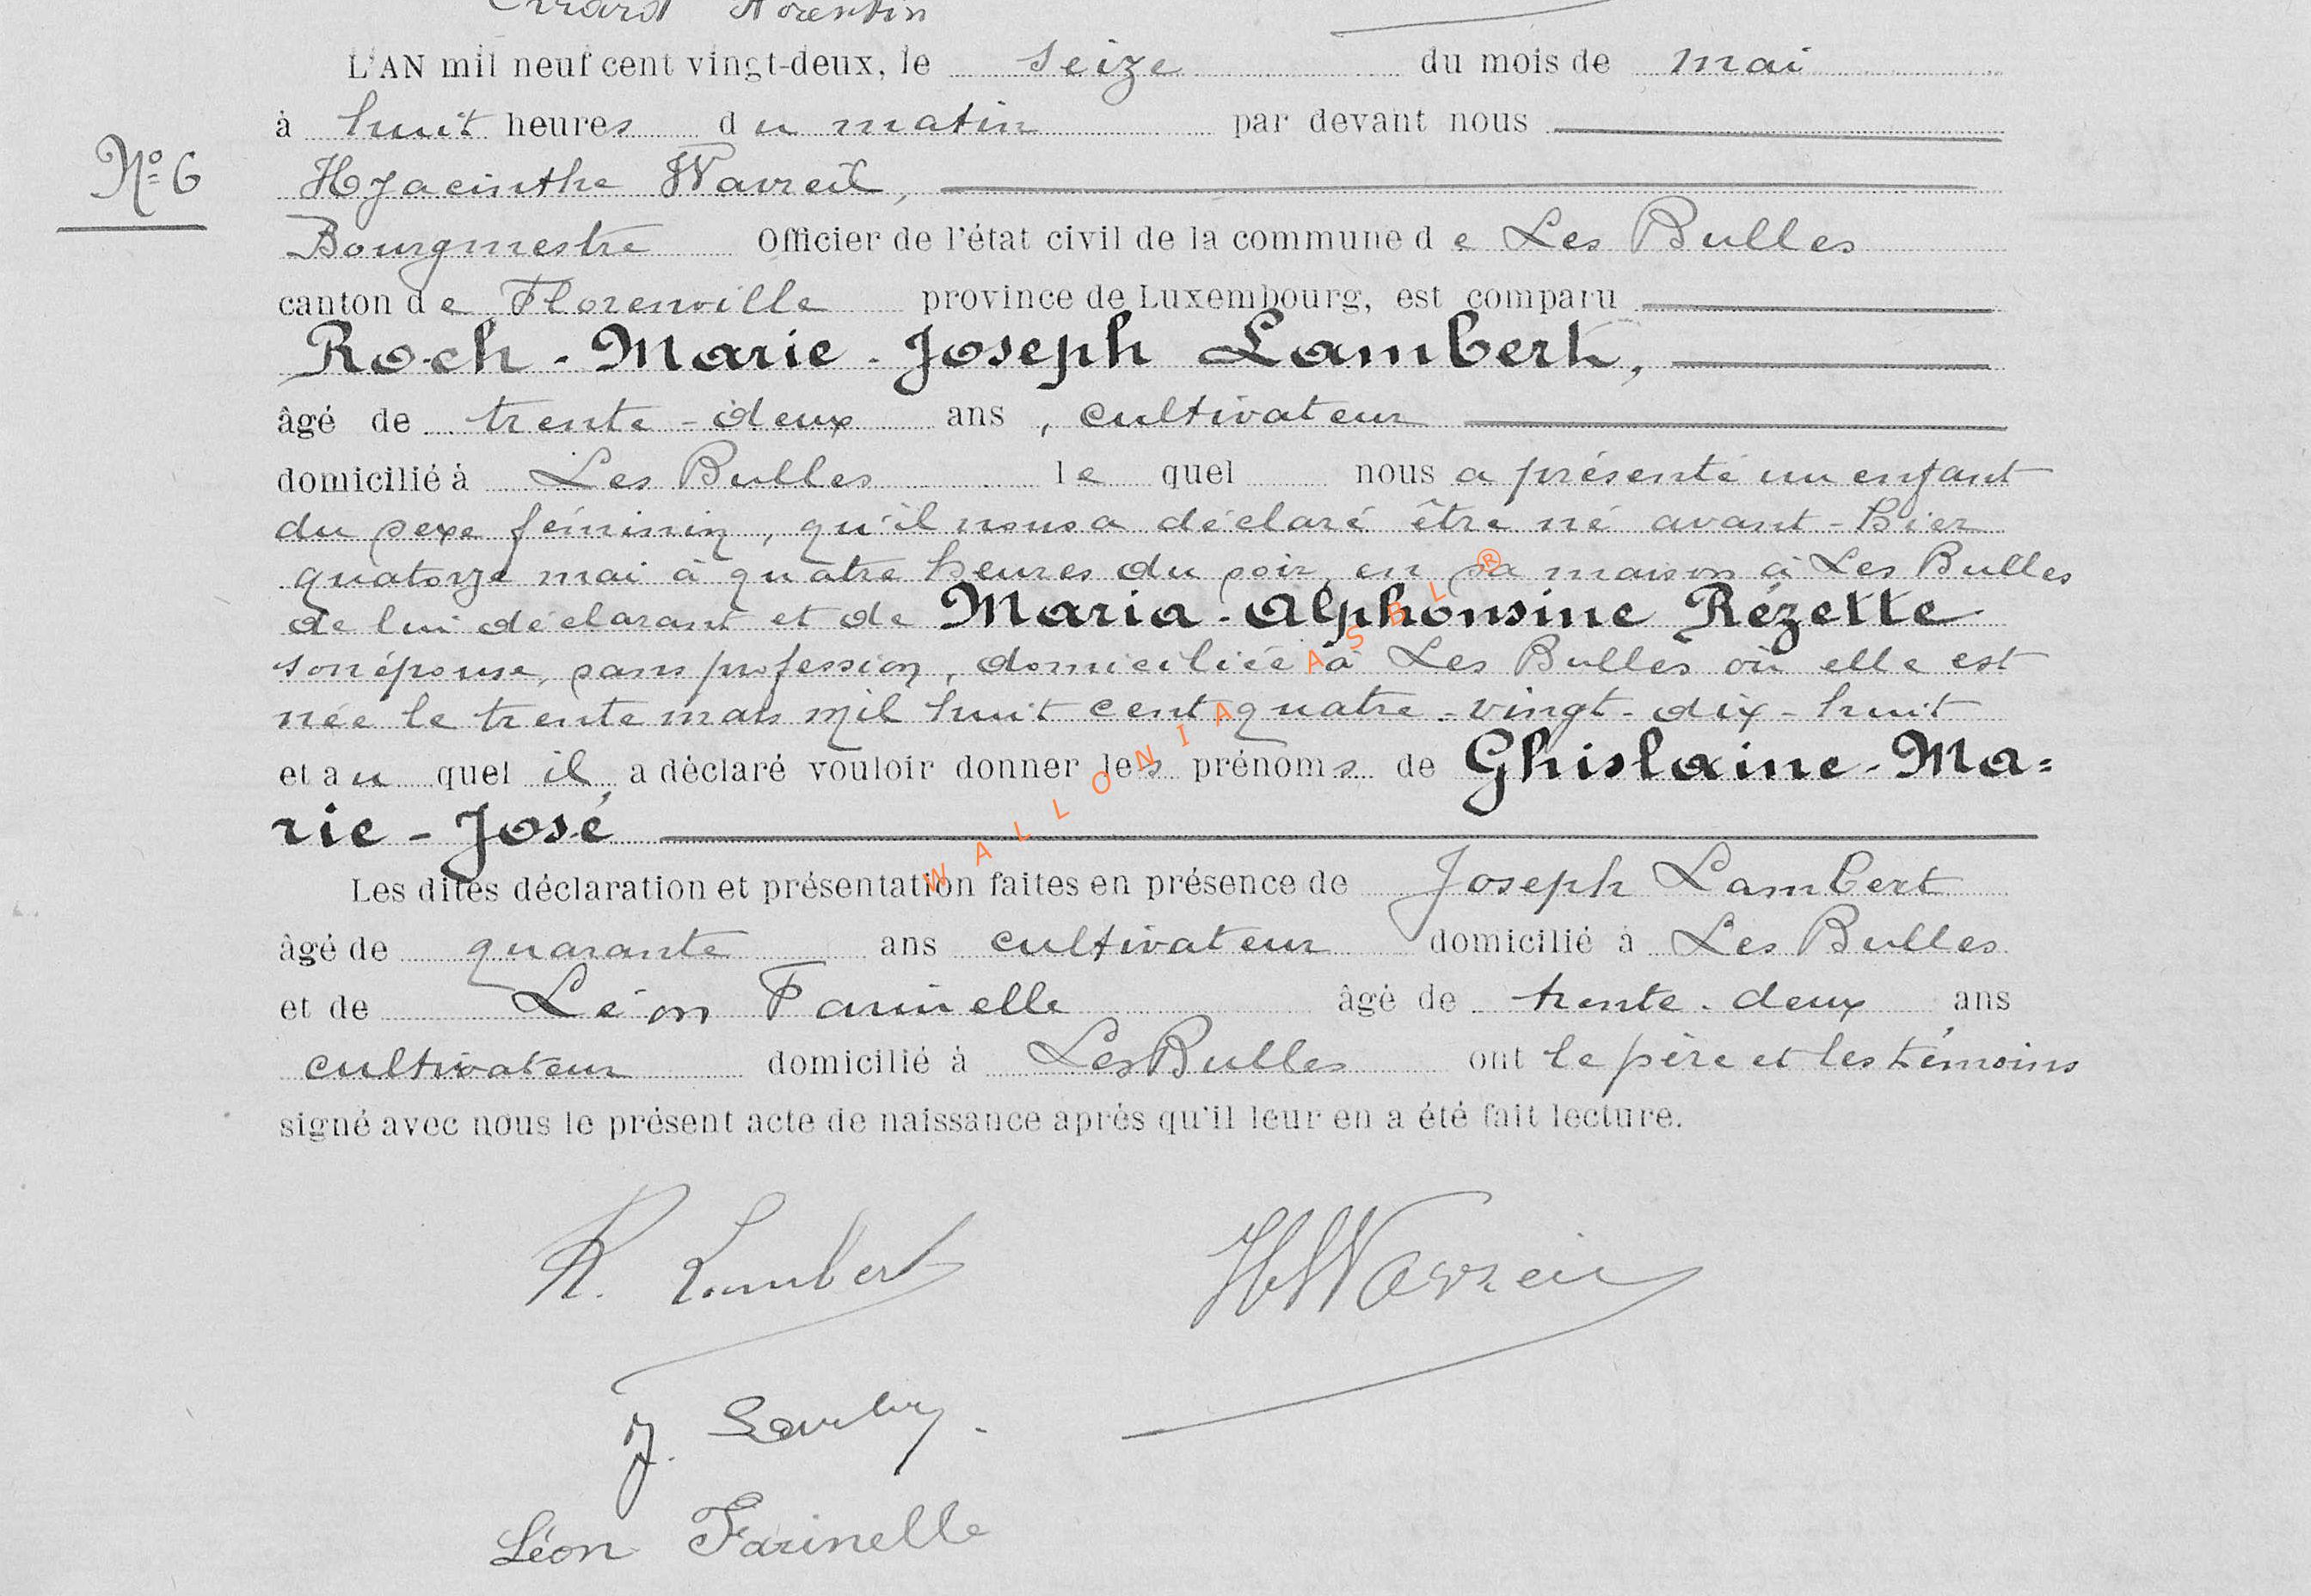 Florentin
L'AN mil neuf cent vingt-deux, le seize du mois de mai
à huit heures du matin par devant nous
N° 6
Hyacinthe Wavreil,
Bourgmestre Officier de l'état civil de la commune de Les Bulles
canton de Florenville province de Luxembourg, est comparu
Roch-Marie-Joseph Lambert,
âgé de trente-deux ans, cultivateur
domicilié à Les Bulles le quel nous a présenté un enfant
du sexe féminin, qu'il nous a déclaré être né avant-hier
quatorze mai à quatre heures du soir, en sa maison à Les Bulles
de lui déclarant et de Maria-Alphonsine Rézette
son épouse, sans profession, domiciliée à Les Bulles où elle est
née le trente mars mil huit cent quatre-vingt-dix-huit
et au quel il a déclaré vouloir donner les prénoms de Ghislaine-Ma=
rie-José
Les dites déclaration et présentation faites en présence de Joseph Lambert
âgé de quarante ans cultivateur domicilié à Les Bulles
et de Léon Farinelle âgé de trente-deux ans
cultivateur domicilié à Les Bulles ont le père et les témoins
signé avec nous le présent acte de naissance après qu'il leur en a été fait lecture.
R. Lambert
H Wavreil
J. Lambert
Léon Farinelle
WALLONIA ASBL ®